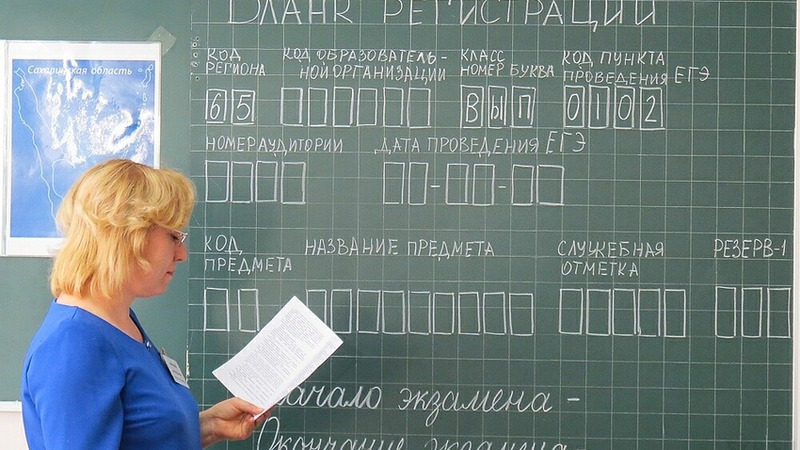 Сахалинская область
БЛАНК РЕГИСТРАЦИИ
КОД РЕГИОНА
КОД ОБРАЗОВАТЕЛЬ-
НОЙ ОРГАНИЗАЦИИ
КЛАСС
НОМЕР БУКВА
КОД ПУНКТА
ПРОВЕДЕНИЯ ЕГЭ
65
ВЫП
0102
НОМЕР АУДИТОРИИ
ДАТА ПРОВЕДЕНИЯ ЕГЭ
КОД
ПРЕДМЕТА
НАЗВАНИЕ ПРЕДМЕТА
СЛУЖЕБНАЯ
ОТМЕТКА
РЕЗЕРВ-1
Начало экзамена -
Окончание экзамена -